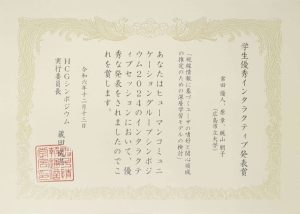 学生優秀インタラクティブ発表賞
「視線情報に基づくユーザの嗜好と関心領域
の推定のための深層学習モデルの検討」
(広島市立大学)
あなたはヒューマンコミュニ
ケーショングループシンポジ
ウム2024のインタラクテ
ィブセッションにおいて、優
秀な発表をされましたのでこ
れを賞します
令和六年十二月十三日
HCGシンポジウム
実行委員長